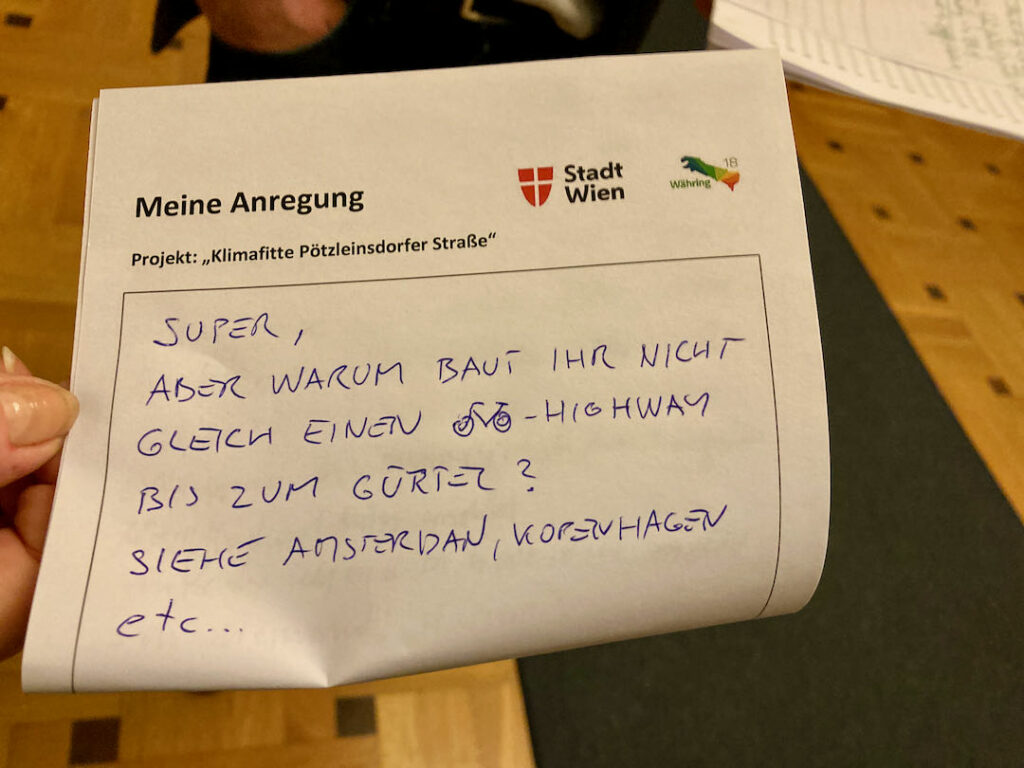 Meine Anregung
Stadt
Wien
18
Währing
Projekt: „Klimafitte Pötzleinsdorfer Straße“
SUPER,
ABER WARUM BAUT IHR NICHT
GLEICH EINEN -HIGHWAY
BIS ZUM GÜRTEL?
SIEHE AMSTERDAN, KOPENHAGEN
etc...